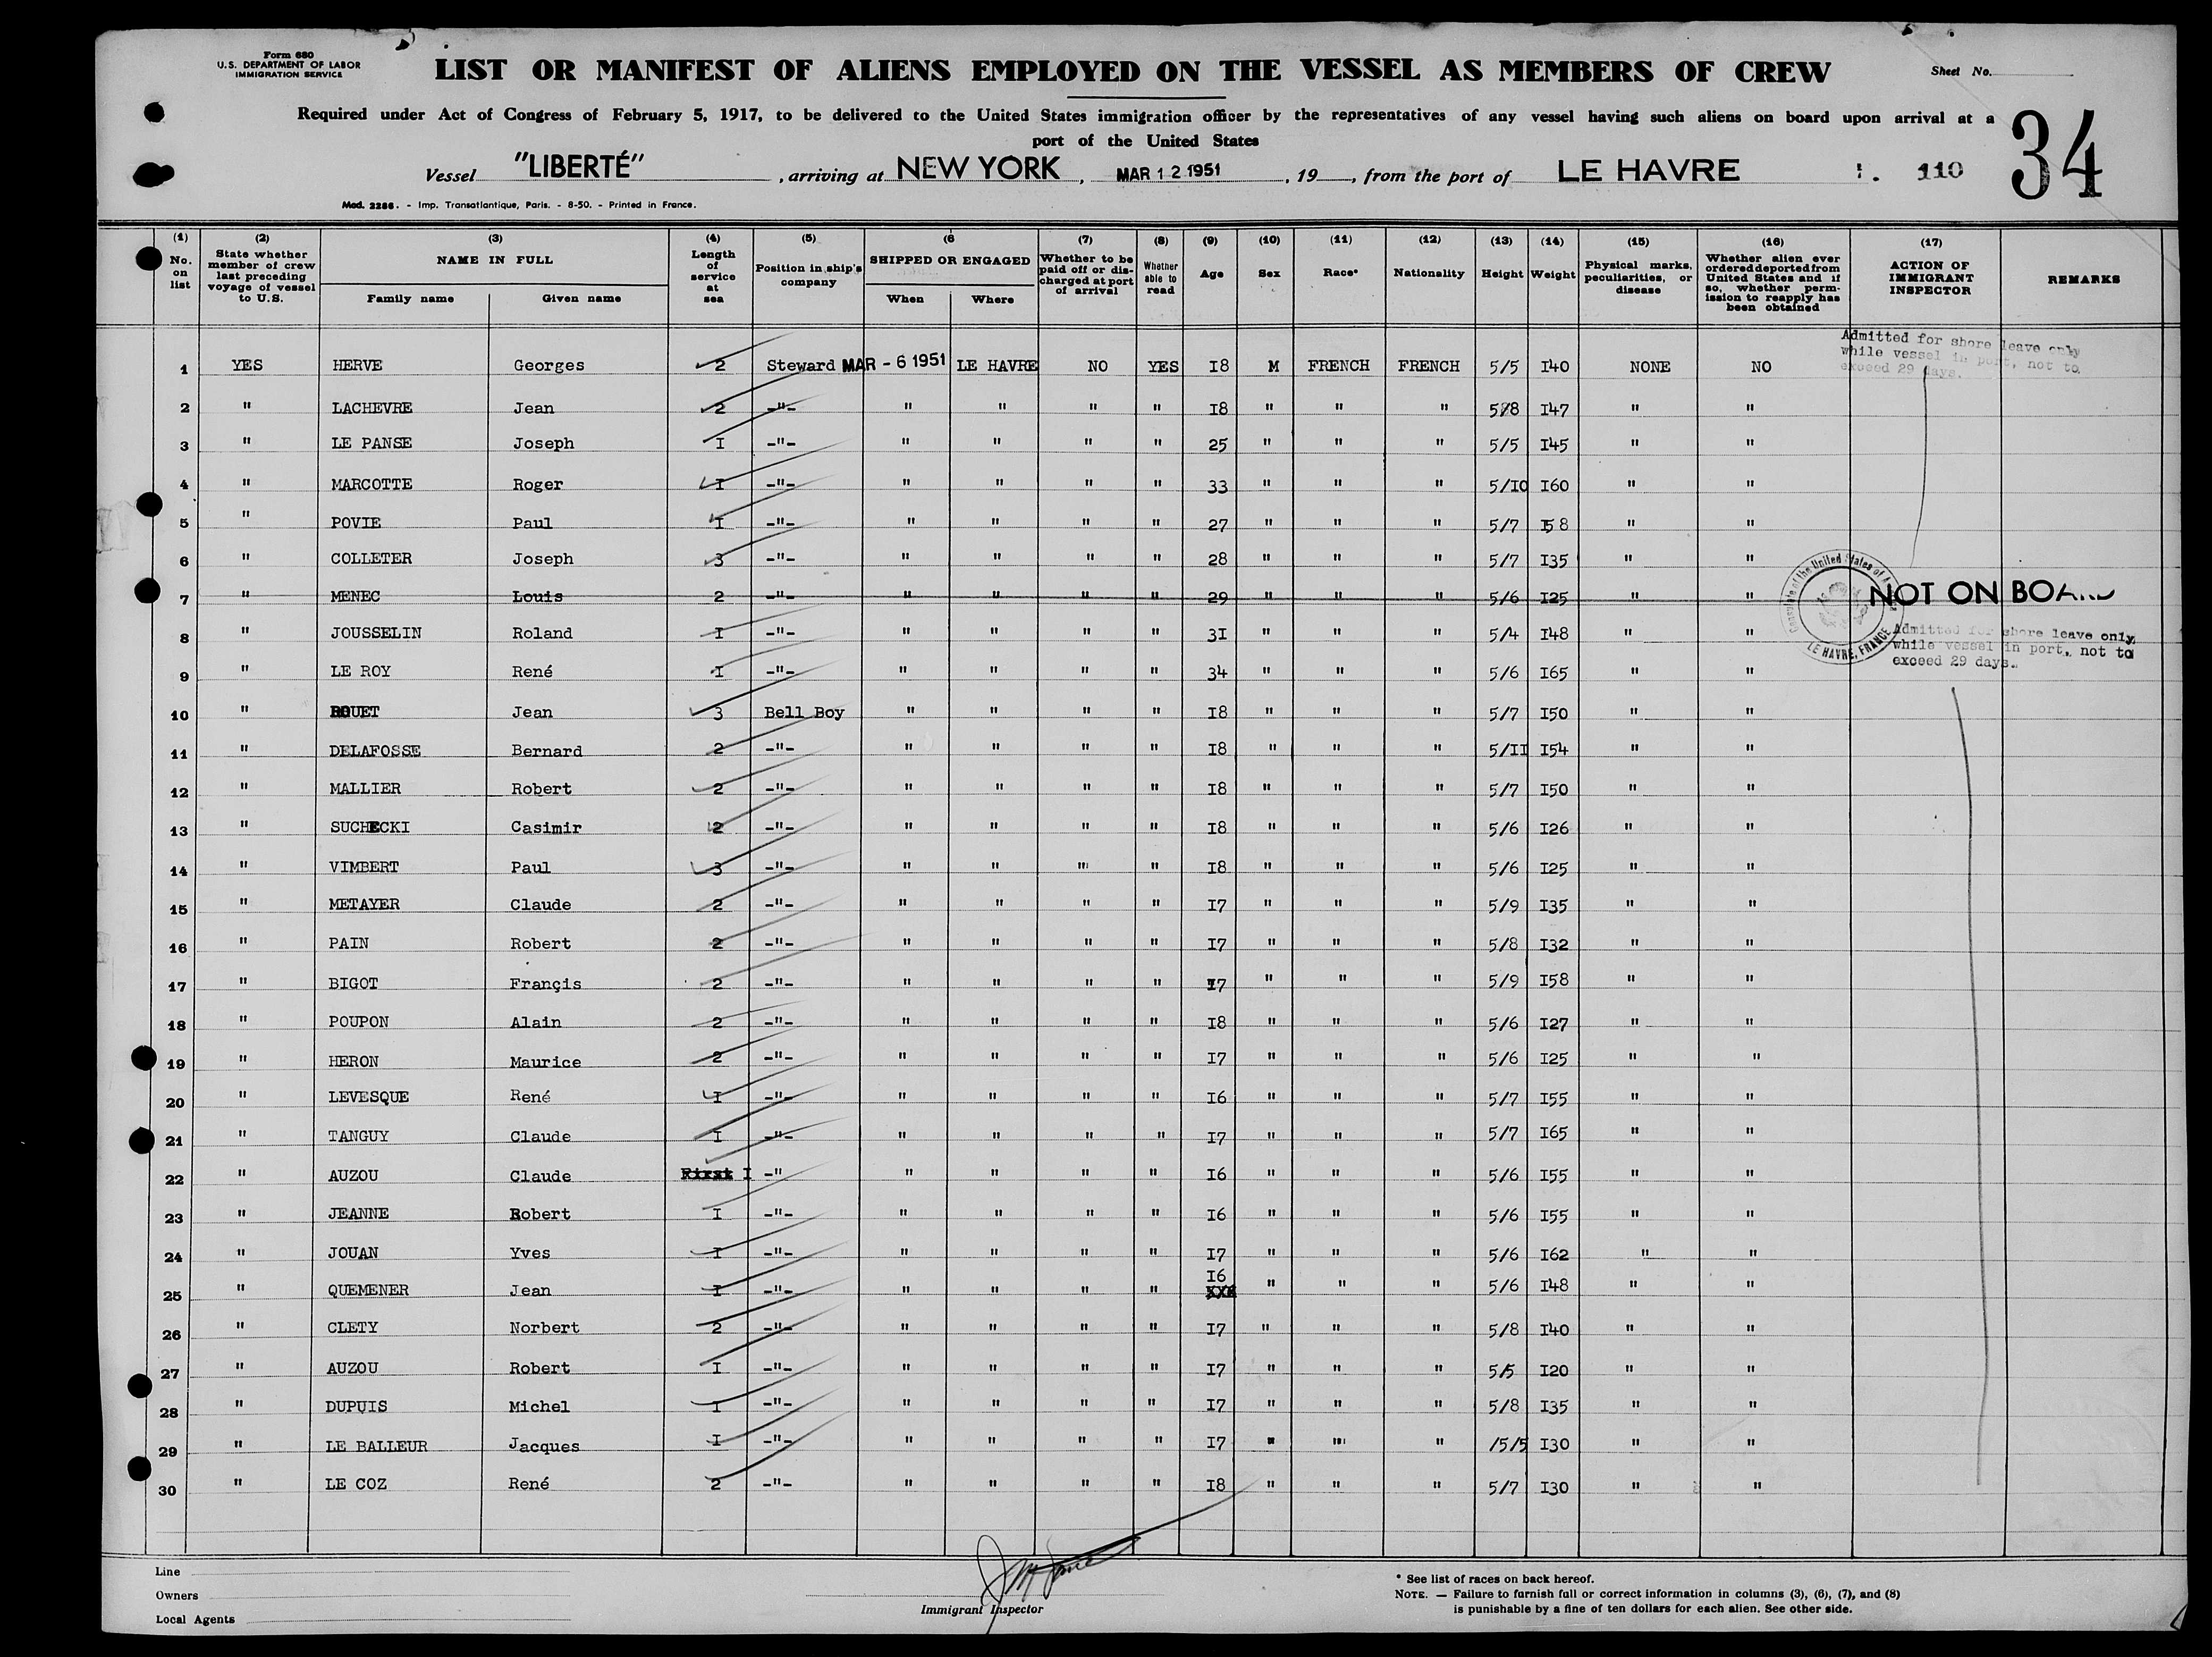 Form 680
U.S. DEPARTMENT OF LABOR
IMMIGRATION SERVICE
LIST OR MANIFEST OF ALIENS EMPLOYED ON THE VESSEL AS MEMBERS OF CREW
Sheet No.
Required under Act of Congress of February 5, 1917, to be delivered to the United States immigration officer by the representatives of any vessel having such aliens on board upon arrival at a
port of the United States
34
Vessel "LIBERTÉ", arriving at NEW YORK, MAR 12 1951, 19, from the port of LE HAVRE 110
Mod. 2286. - Imp. Transatlantique, Paris. - 8-50. - Printed in France.
(1) (2) (3) (4) (5) (6 (7) (8) (9) (10) (11) (12) (13) (14) (15) (16) (17)
No. on list
State whether member of crew last preceding voyage of vessel to U.S.
NAME IN FULL
Family name Given name
Length of service at sea
Position in ship's company
SHIPPED OR ENGAGED
When Where
Whether to be paid off or discharged at port of arrival
Whether able to read
Age
Sex
Race*
Nationality
Height
Weight
Physical marks, peculiarities, or disease
Whether alien ever ordered deported from United States and if so, whether permission to reapply has been obtained
ACTION OF IMMIGRANT INSPECTOR
REMARKS
Admitted for shore leave only
while vessel in port, not to
exceed 29 days.
1 YES HERVE Georges 2 Steward MAR - 6 1951 LE HAVRE NO YES I8 M FRENCH FRENCH 5/5 I40 NONE NO
2 " LACHEVRE Jean 2 -"- " " " " I8 " " " 5/8 I47 " "
3 " LE PANSE Joseph I -"- " " " " 25 " " " 5/5 I45 " "
4 " MARCOTTE Roger I -"- " " " " 33 " " " 5/I0 I60 " "
5 " POVIE Paul I -"- " " " " 27 " " " 5/7 I58 " "
6 " COLLETER Joseph 3 -"- " " " " 28 " " " 5/7 I35 " "
7 " MENEC Louis 2 -"- " " " " 29 " " " 5/6 I25 " " NOT ON BOARD
8 " JOUSSELIN Roland I -"- " " " " 3I " " " 5/4 I48 " "
LE HAVRE, FRANCE
Admitted for shore leave only
while vessel in port, not to
exceed 29 days.
9 " LE ROY René I -"- " " " " 34 " " " 5/6 I65 " "
10 " ROUET Jean 3 Bell Boy " " " " I8 " " " 5/7 I50 " "
11 " DELAFOSSE Bernard 2 -"- " " " " I8 " " " 5/II I54 " "
12 " MALLIER Robert 2 -"- " " " " I8 " " " 5/7 I50 " "
13 " SUCHECKI Casimir 2 -"- " " " " I8 " " " 5/6 I26 " "
14 " VIMBERT Paul 3 -"- " " " " I8 " " " 5/6 I25 " "
15 " METAYER Claude 2 -"- " " " " I7 " " " 5/9 I35 " "
16 " PAIN Robert 2 -"- " " " " I7 " " " 5/8 I32 " "
17 " BIGOT Françis 2 -"- " " " " I7 " " " 5/9 I58 " "
18 " POUPON Alain 2 -"- " " " " I8 " " " 5/6 I27 " "
19 " HERON Maurice 2 -"- " " " " I7 " " " 5/6 I25 " "
20 " LEVESQUE René I -"- " " " " I6 " " " 5/7 I55 " "
21 " TANGUY Claude I -"- " " " " I7 " " " 5/7 I65 " "
22 " AUZOU Claude First I -" " " " " I6 " " " 5/6 I55 " "
23 " JEANNE Robert I -"- " " " " I6 " " " 5/6 I55 " "
24 " JOUAN Yves I -"- " " " " I7 " " " 5/6 I62 " "
25 " QUEMENER Jean I -"- " " " " I6 " " " 5/6 I48 " "
26 " CLETY Norbert 2 -"- " " " " I7 " " " 5/8 I40 " "
27 " AUZOU Robert I -"- " " " " I7 " " " 5/5 I20 " "
28 " DUPUIS Michel I -"- " " " " I7 " " " 5/8 I35 " "
29 " LE BALLEUR Jacques I -"- " " " " I7 " " " /5/5 I30 " "
30 " LE COZ René 2 -"- " " " " I8 " " " 5/7 I30 " "
Line
Owners
Local Agents
Immigrant Inspector
* See list of races on back hereof.
NOTE. — Failure to furnish full or correct information in columns (3), (6), (7), and (8)
is punishable by a fine of ten dollars for each alien. See other side.